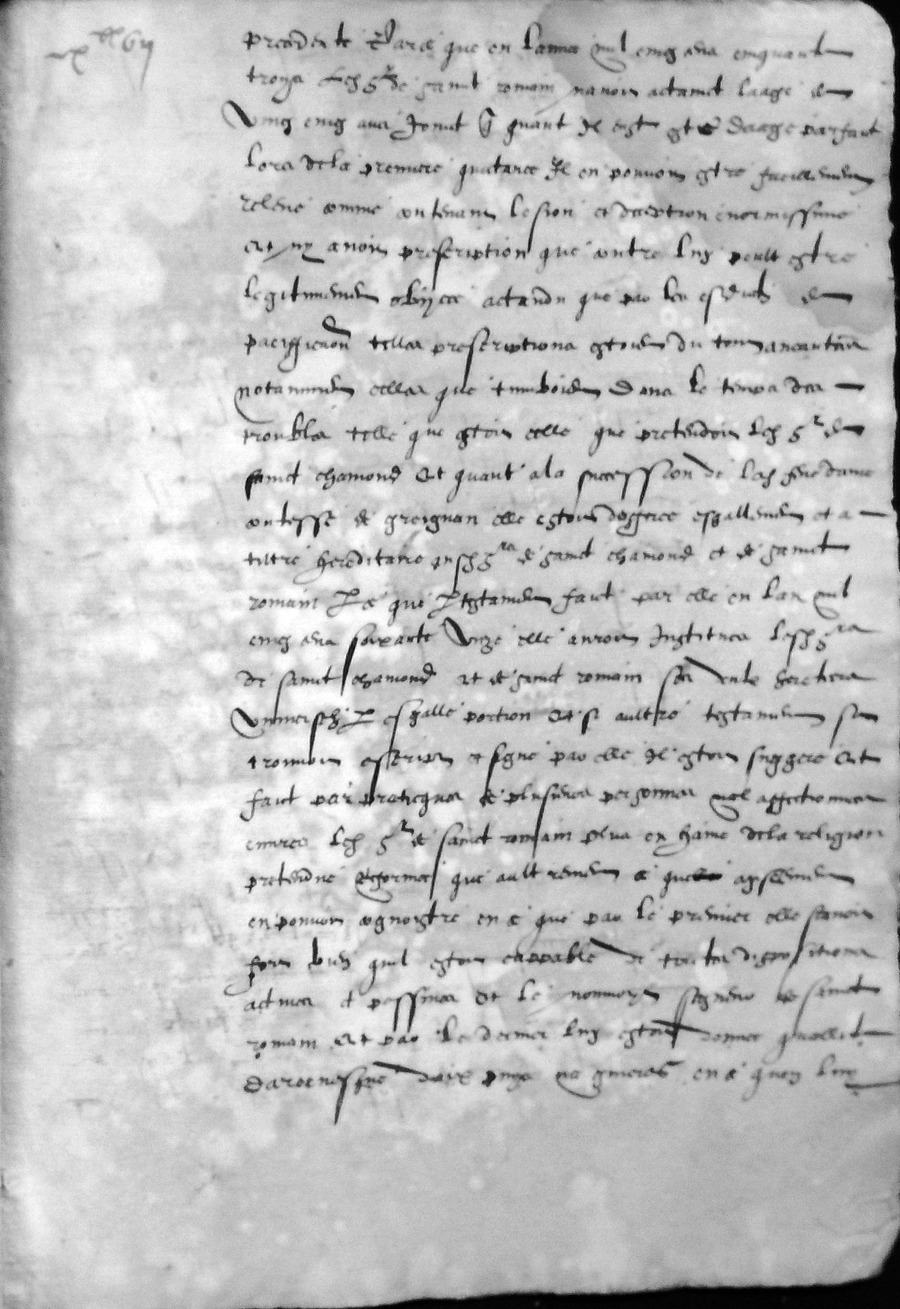 precedente Parce que en lannee mil cinq cens cinquante
troys Led sr de sainct romain navoit actainct laage de
Vingt cinq ans Joinct q quant Il eust este daage parfaict
Lors dela premiere quitance Il en pouvoit estre facillement
releve comme contenant lesion et deception enormissime
Et ny avoit prescription que contre luy peult estre
legitimement objicee actandu que par les esdictz de
paciffication telles prescriptions estoient du tout aneanties
notamment celles que tumboient dans le temps des
troubles telle que estoit celle que pretendoit Led sr de
sainct chamond Et quant ala succession de lad feue dame
contesse de greignan elle estoit esgallement et a
tiltre hereditaire ausd srs de sainct chamond et de sainct
romain Parce que Par testament faict par elle en lan mil
cinq cens soixante Unze elle auroit Institues lesd srs
de sainct chamond et de sainct romain ses heritiers
Universelz Par esgalle portion Et si aultre testament se
trouvoit escript et signe par elle Il estoit suggere Et
faict par praticques de plusieurs personnes mal affectionnees
envers Led sr de sainct romain plus en haine dela religion
pretendue Refformee que aultrement ce que aysement
en pouvoit cognoistre en ce que par le premier elle scavoit
fort bien quil estoit cappable de toutes dispositions
actives et passives Et le nommoyt seigneur de sainct
romain Et par le dernier luy estoit donnee quallite
darcevesque daix puys na guieres en ce quoy luy